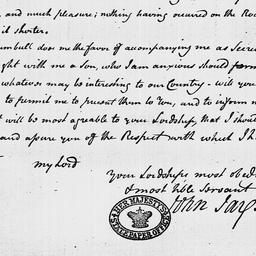 and much pleasure; nothing having occured on the Roa
it shorter.
umbull does me the favor of accompanying me as Secre
ght with me a Son, who I am anxious should form
whatever may be interesting to our Country - will you
to permit me to present them to You, and to inform m
t will be most agreeable to your Lordship, that I shoul
and assure you of the Respect with which I h
my Lord
your Lordships most obed
& most hble Servant
John Jay
HER MAJESTY'S
STATE PAPER OFFICE